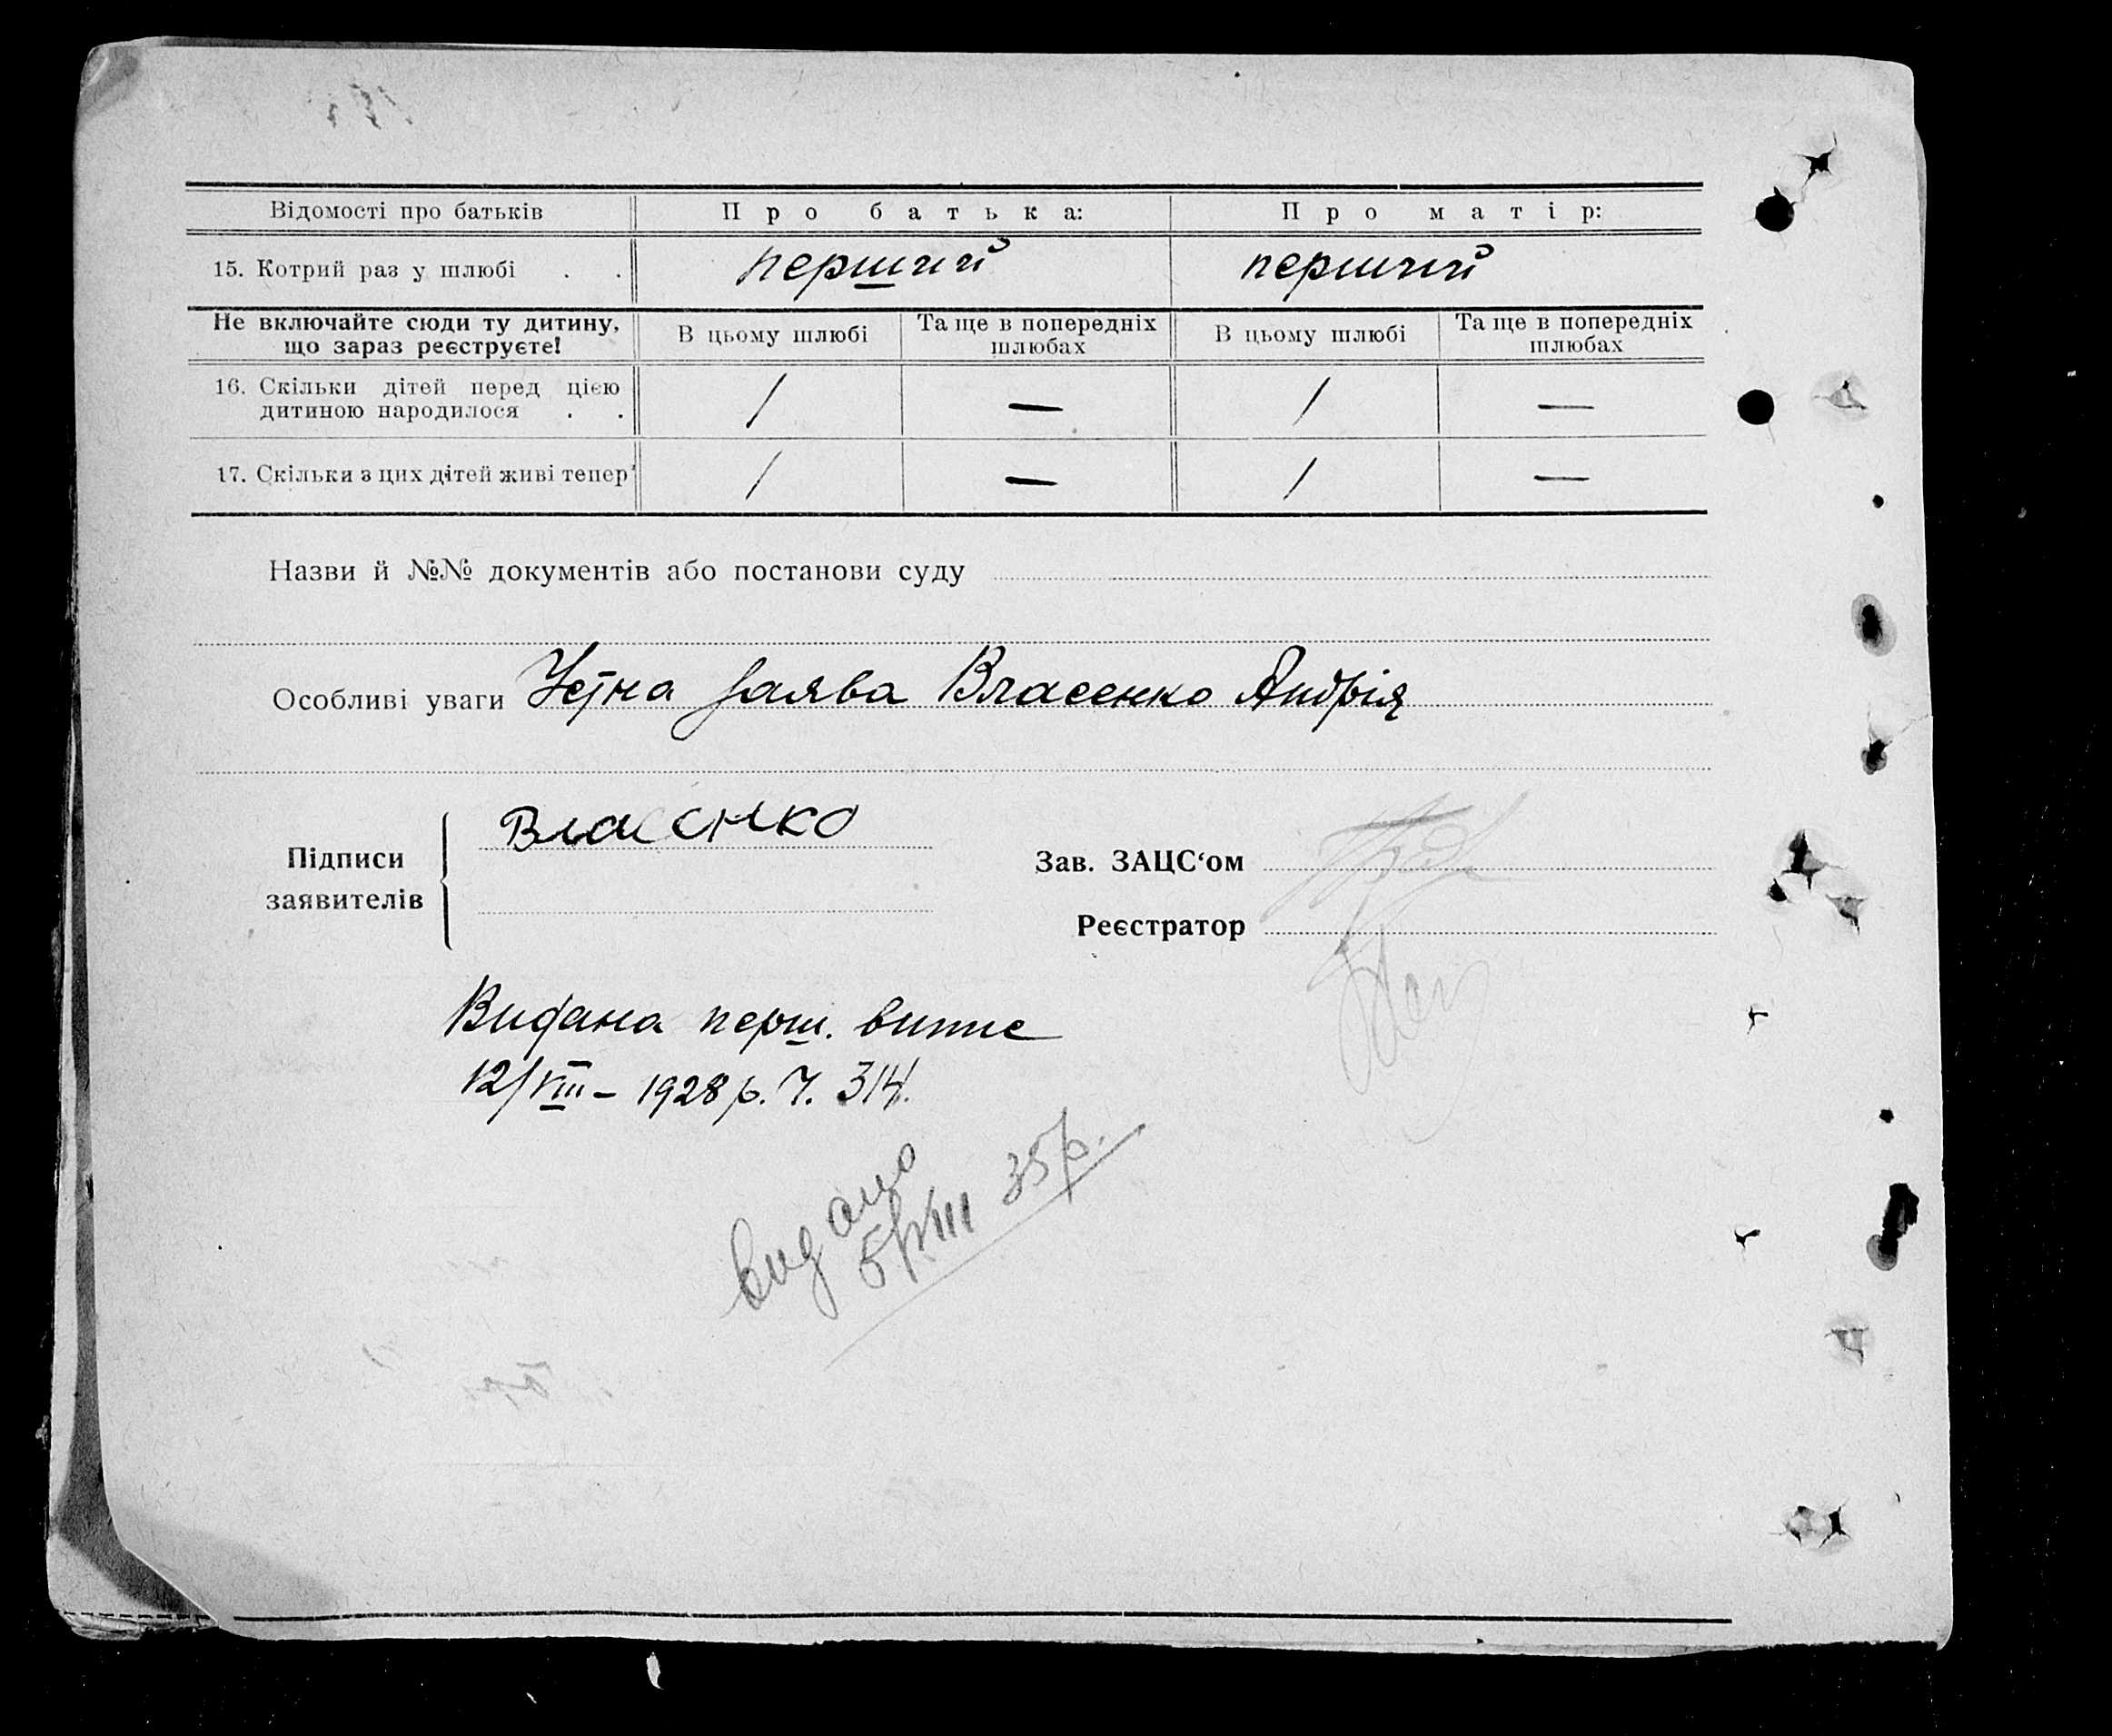 Відомості про батьків Про батька: Про матір:
15. Котрий раз у шлюбі . . перший перший
Не включайте сюди ту дитину, що зараз реєструєте! В цьому шлюбі Та ще в попередніх шлюбах В цьому шлюбі Та ще в попередніх шлюбах
16. Скільки дітей перед цією
дитиною народилося . . 1 — 1 —
17. Скільки з цих дітей живі тепер 1 — 1 —
Назви й №№ документів або постанови суду
Особливі уваги Устна заява Власенко Андрія
Підписи заявителів Власенко
Зав. ЗАЦС‘ом
Реєстратор
Видана перш. випис
12/VIII – 1928 р. Ч. 314.
видано
5/VIII 35 р.